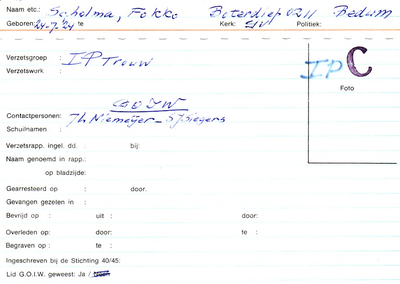 Naam etc.: Scholma, Fokko Boterdiep 0211 Bedum
Geboren: 24-7-'24 te : Kerk: Politiek:
Verzetsgroep : IP Trouw
Verzetswerk :
IP C
Foto
GOIW
Contactpersonen: Th. Niemeijer - S.J. Siegers
Schuilnamen :
Verzetsrapp. ingel. dd. : bij:
Naam genoemd in rapp.:
op bladzijde:
Gearresteerd op : door.
Gevangen gezeten in :
Bevrijd op : uit : door:
Overleden op: door: te :
Begraven op : te :
Ingeschreven bij de Stichting 40/45:
Lid G.O.I.W. geweest: Ja /